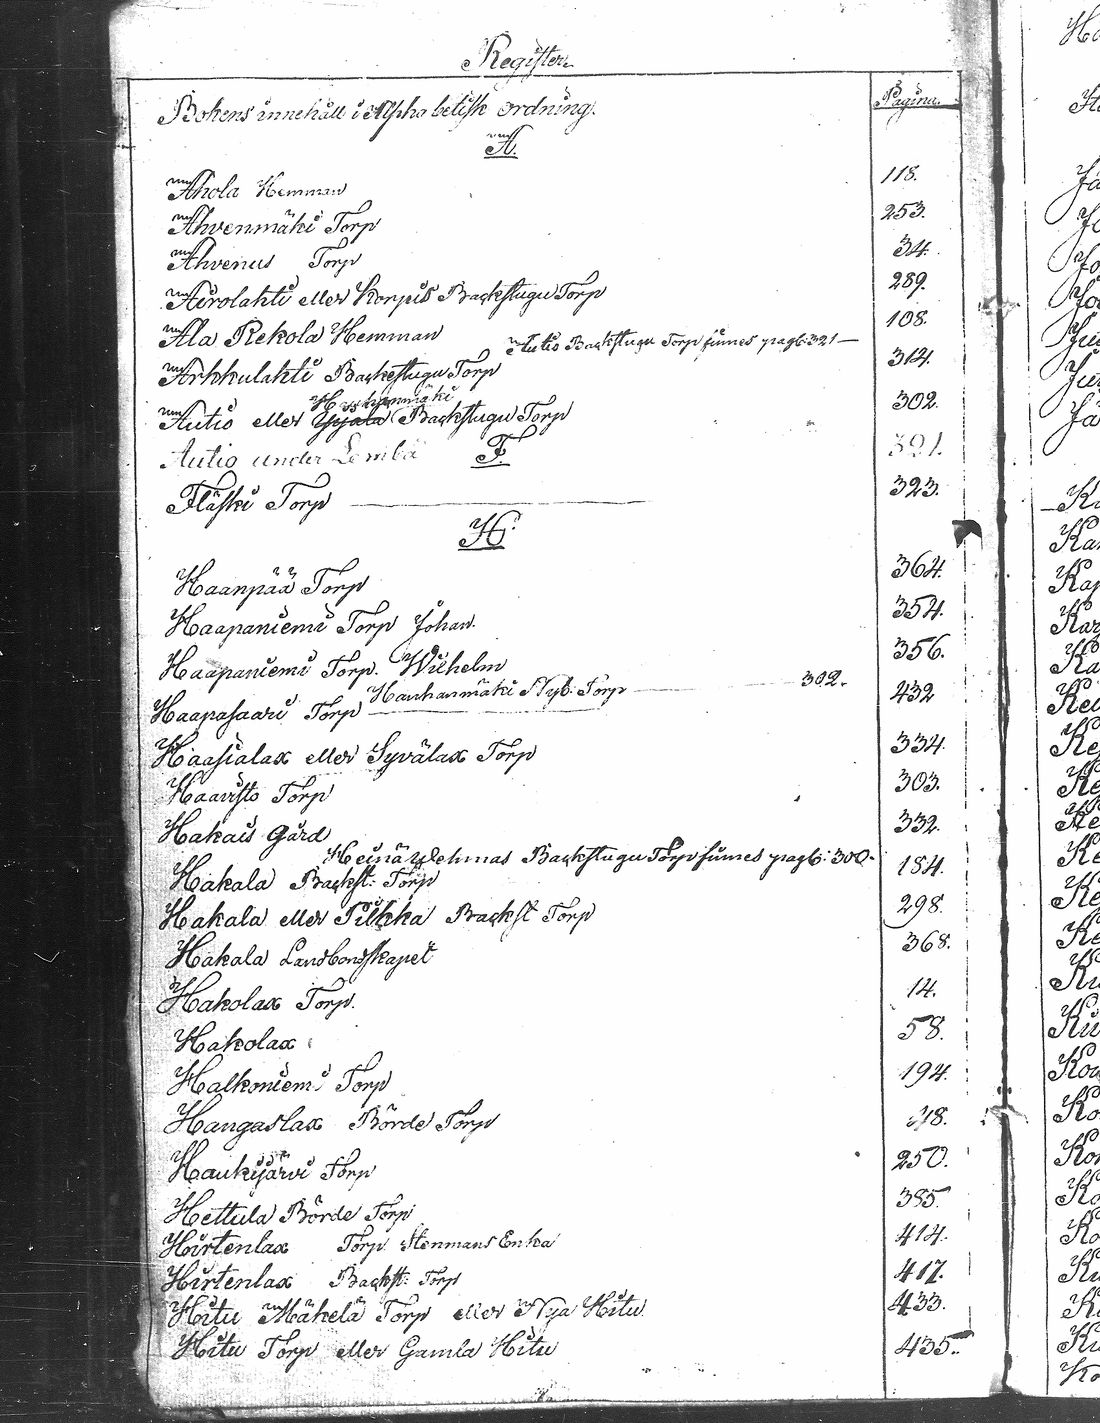 Register
Bokens innehåll i Alphabetisk ordning. Pagina.
A.
Ahola Hemman 118.
Ahvenmäki Torp 253.
Ahvenus Torp 34.
Airolahti eller Korpis Backstugu Torp 289.
Ala Rekola Hemman 108.
Autio Backstugu Torp finnes pag: 321
Arkkulahti Backstugu Torp 314.
Autio eller Backstugu Torp 302.
Autio under Lembä 321.
F.
Fläski Torp 323.
H.
Haanpää Torp 364.
Haapaniemi Torp Johan. 354.
Haapaniemi Torp. Wilhelm 356.
Hauhanmäki Nyb. Torp 302.
Haapasaari Torp 432
Haasialax eller Syvälax Torp 334.
Haavisto Torp 303.
Hakais Gård 332.
Backstugu Torp finnes pag: 300.
Hakala Backst: Torp 184.
Hakala eller Pilkka Backst Torp 298.
Hakala Landbondskapet 368.
Hakolax Torp. 14.
Hakolax 58.
Halkoniemi Torp 194.
Hangaslax Börde Torp
Haukijärvi Torp 250.
Hettula Börde Torp 385.
Hirtenlax Torp Stenmans Enka 414.
Hirtenlax Backst: Torp 417.
Hitu Mäkelä Torp eller Nya Hitu 433.
Hitu Torp eller Gamla Hitu 435.